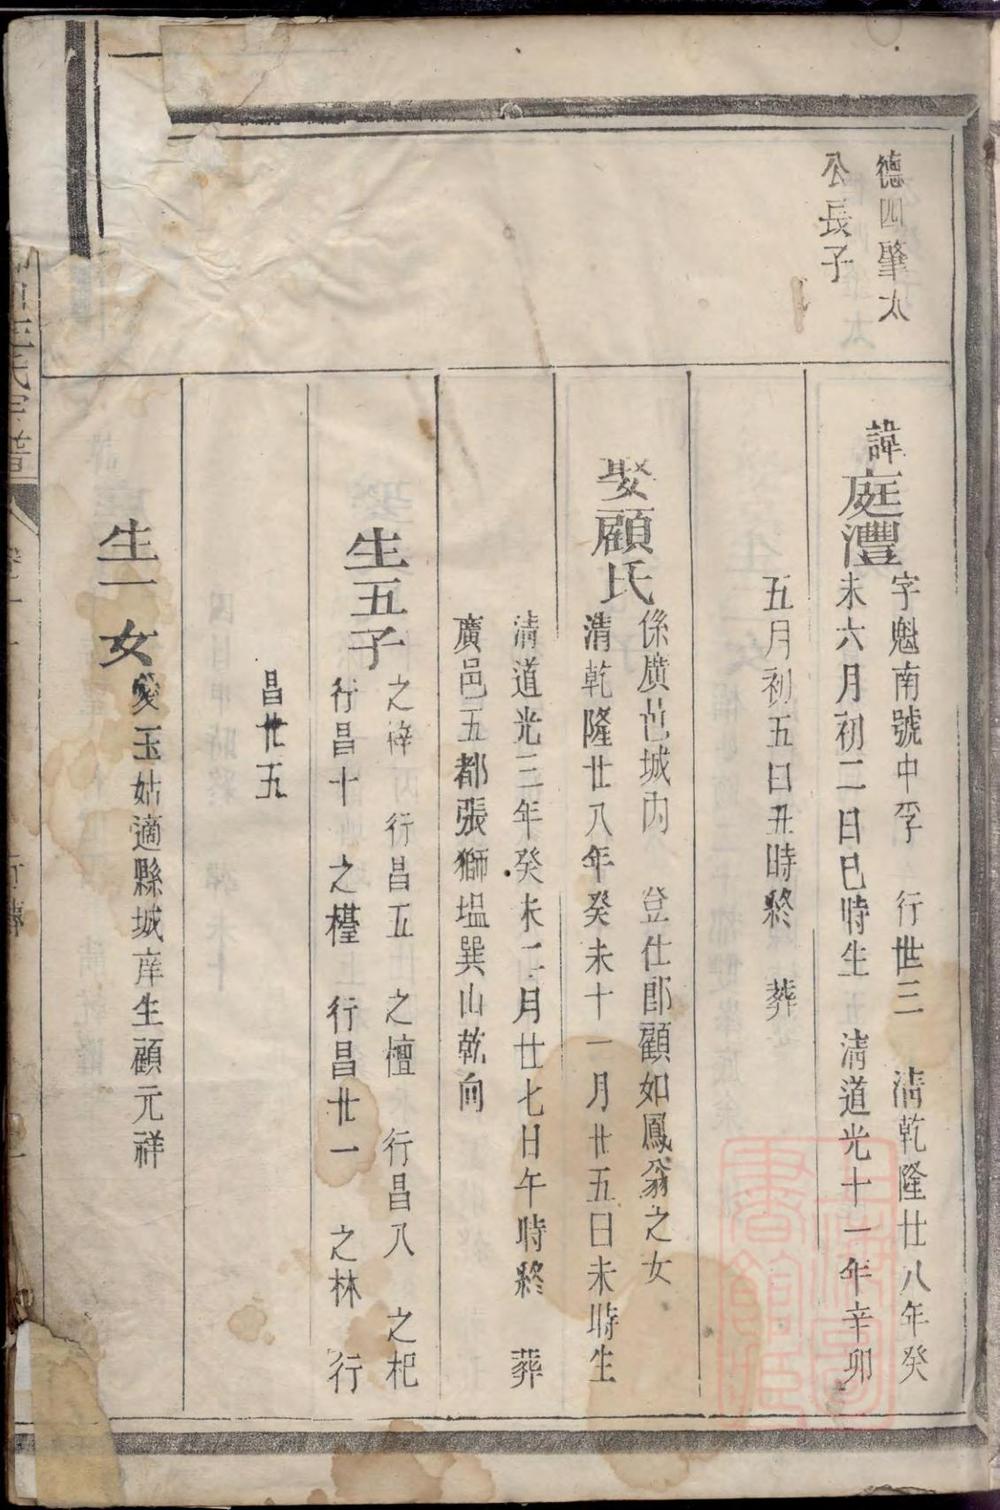 德四肇太
公長子
諱庭灃
字魁南號中孚 行世三 清乾隆廿八年癸
未六月初二日巳時生 清道光十一年辛卯
五月初五日丑時終 葬
娶顧氏
係廣邑城內 登仕郎顧如鳳翁之女
清乾隆廿八年癸未十一月廿五日未時生
清道光三年癸未二月廿七日午時終 葬
廣邑五都張獅塭巽山乾向
生五子
之梓 行昌五 之檀 行昌八 之杞
行昌十 之樁 行昌廿一 之林 行
昌廿五
生一女
愛玉姑適縣城庠生顧元祥
王氏宗譜